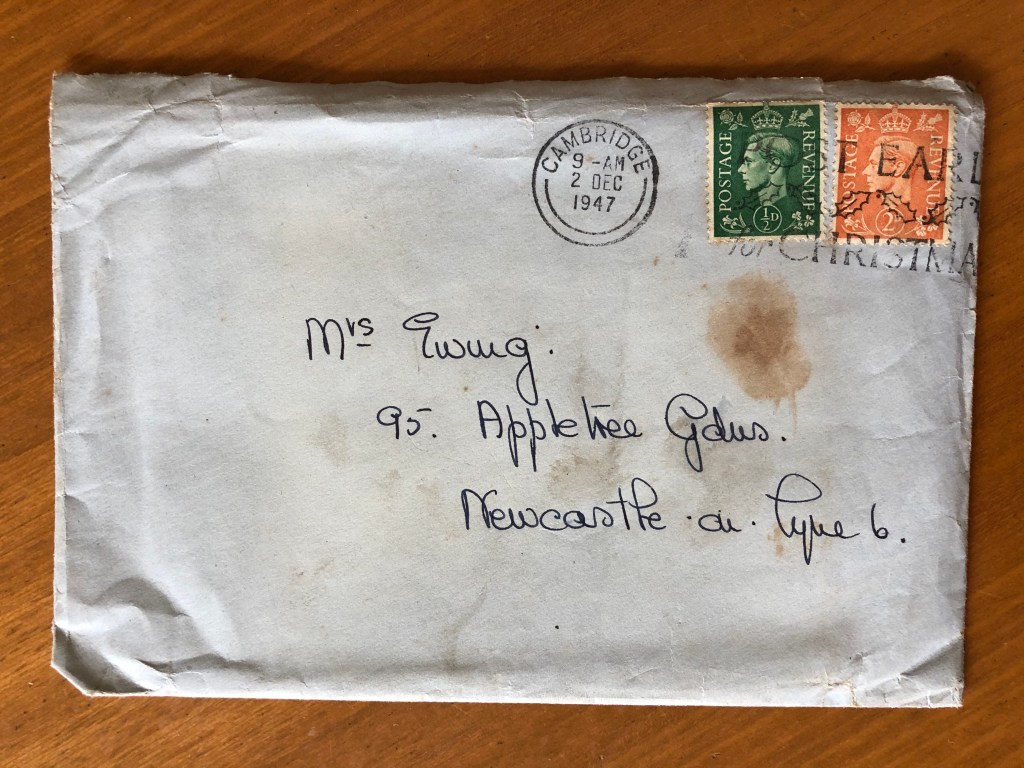 CAMBRIDGE
9-AM
2 DEC
1947
POSTAGE REVENUE
½D
POSTAGE REVENUE
2
EARL
for CHRISTMA
Mrs Ewing.
95. Appletree Gdns.
Newcastle. on. Tyne 6.